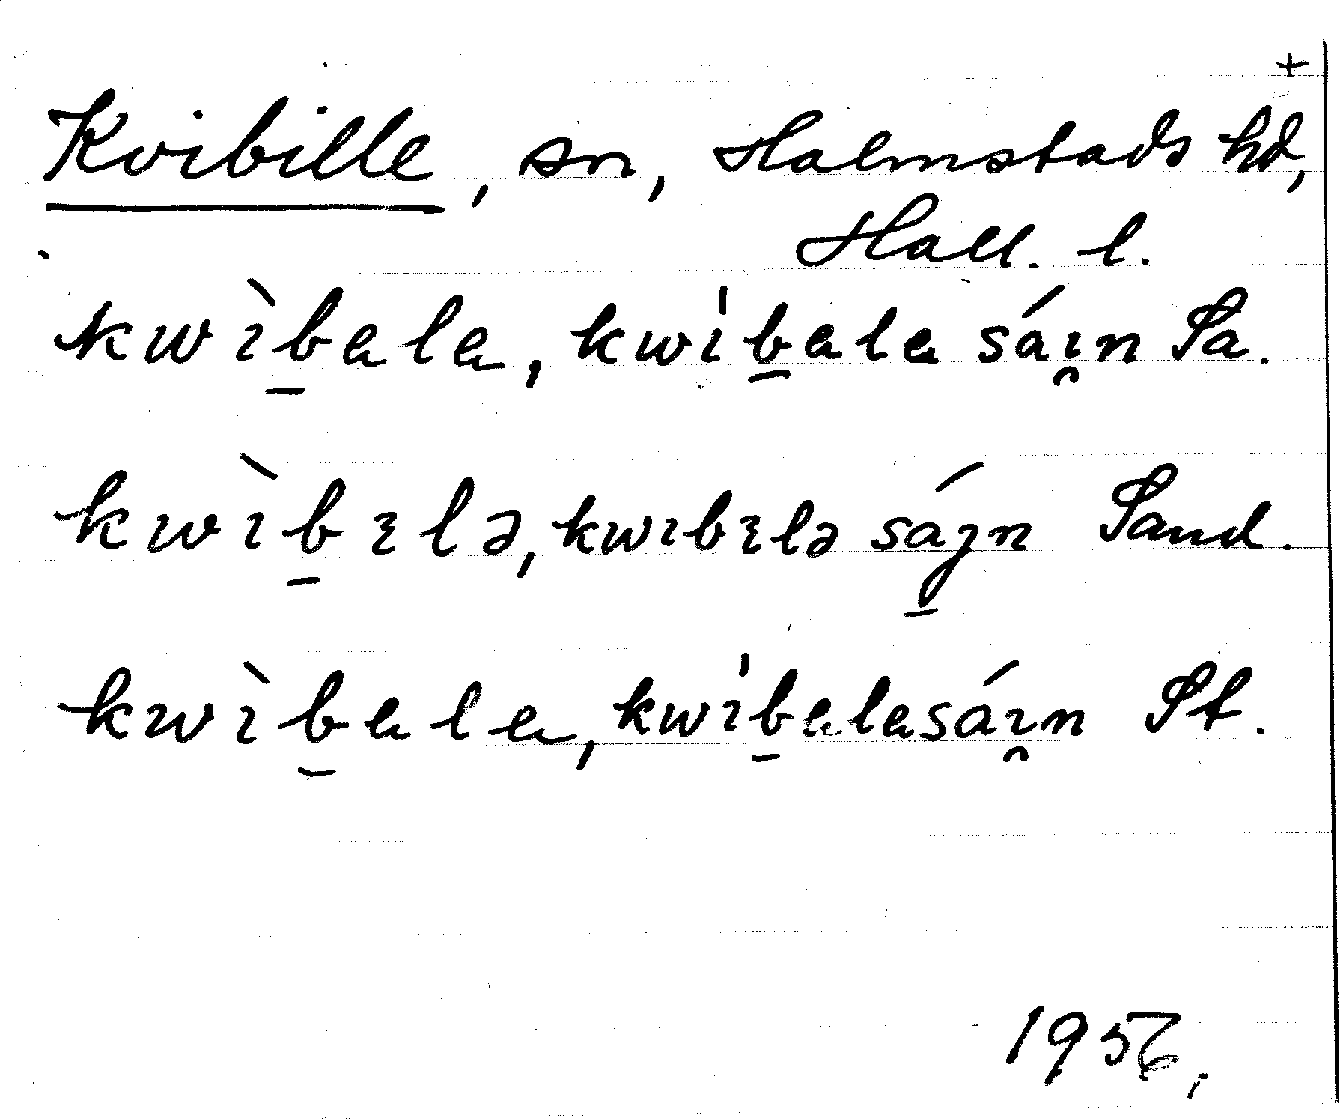 +
Kvibille, sn, Halmstads hd,
Hall. l.
kwìb̲ala, kwib̲ala sáı̯n Sa.
kwìb̲ılə, kwıbılə sáɟn Sand.
kwìb̲ala, kwib̲alasáı̯n St.
1956.